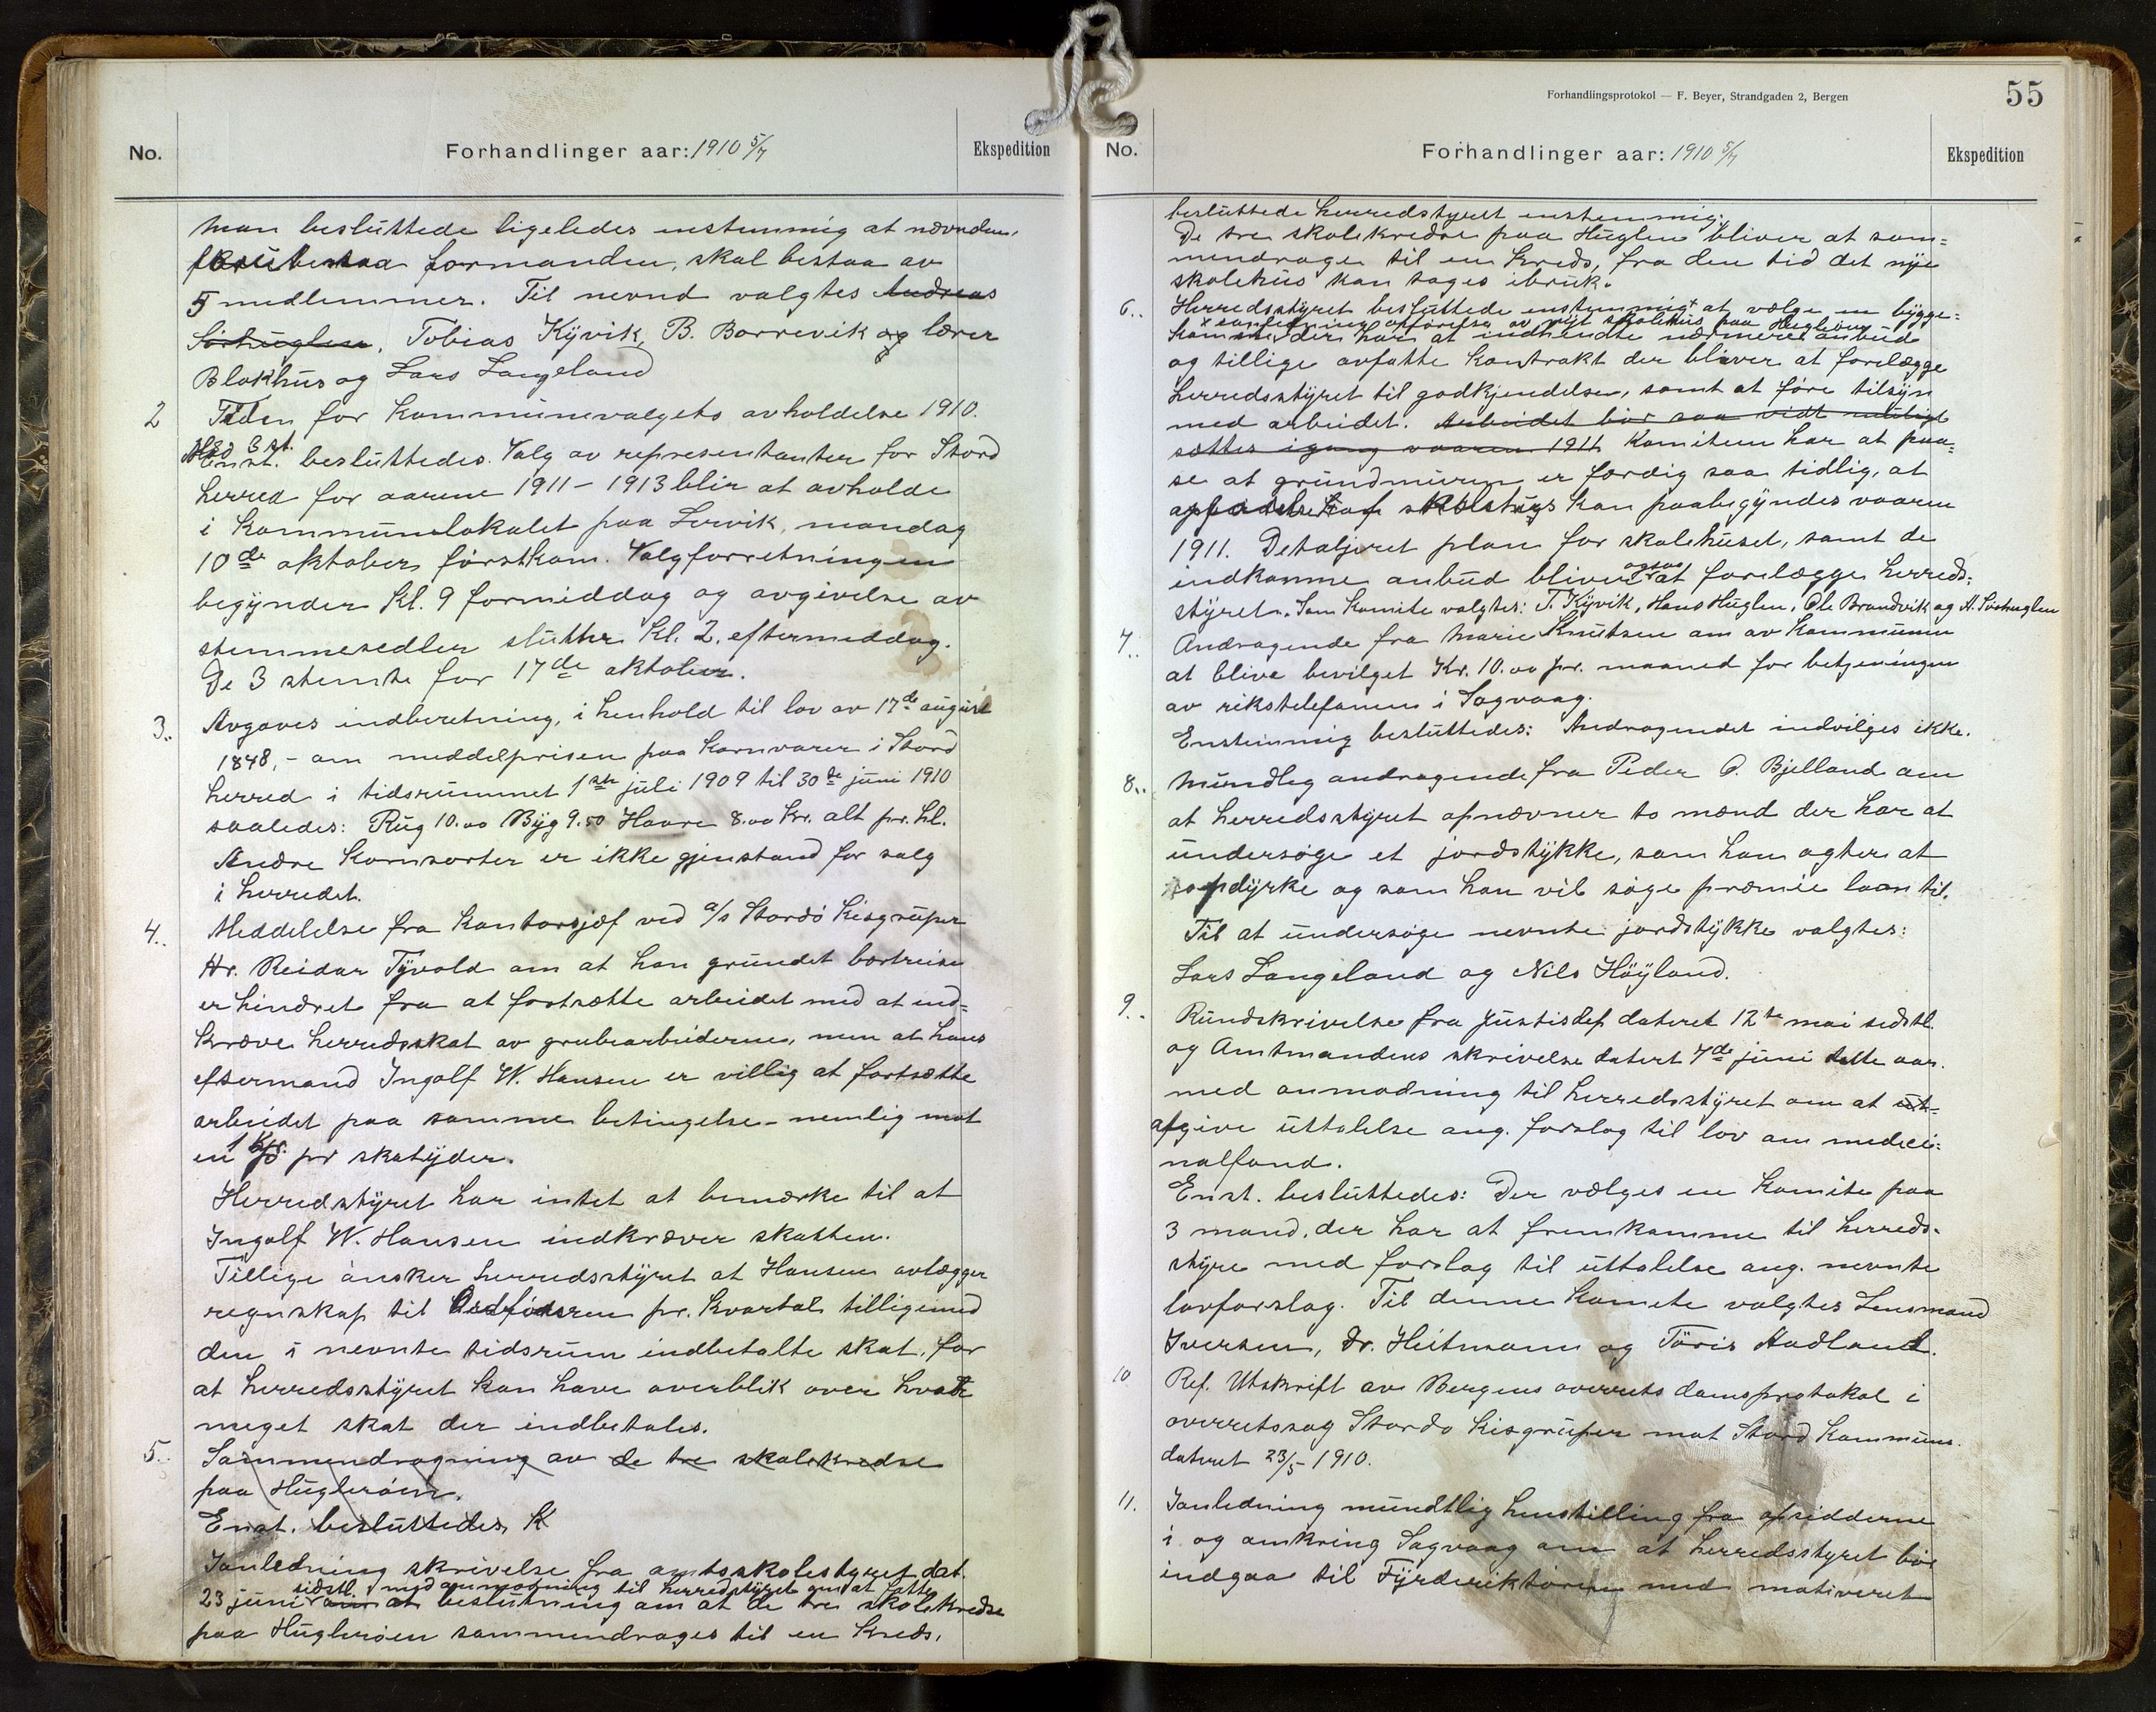 No.
Forhandlinger aar: 1910 5/7
Ekspedition
Man besluttede ligeledes enstemmig at nævnden,
formanden, skal bestaa av
5 medlemmer. Til nevnd valgtes Andreas
Sørhuglen, Tobias Kyvik, B. Borrevik og lærer
Blokhus og Lars Langeland
2 Tiden for Kommunevalgets avholdelse 1910.
Med 3 st.
Enst. besluttedes. Valg av representanter for Stord
herred for aarene 1911 - 1913 blir at avholde
i Kommunelokalet paa Lervik, mandag
10de oktober førstkom. Valgforretningen
begynder kl. 9 formiddag og avgivelse av
stemmesedler slutter kl. 2. eftermeddag.
De 3 stemte for 17de oktober.
3.. Avgaves indberetning, i henhold til lov av 17de august
1848, - om meddelprisen paa kornvarer i Stord
herred i tidsrummet 1ste juli 1909 til 30de juni 1910
saaledes: Rug 10.00 Byg 9.50 Havre 8.00 kr. alt pr. hl.
Andre kornsorter er ikke gjenstand for salg
i herredet.
4.. Meddelelse fra Kontorsjef ved a/s Stordø Kisgruper
Hr. Reidar Tyvold om at han grundet bortreise
er hindret fra at fortsætte arbeidet med at ind=
kræve herredsskat av grubearbeiderne, men at hans
eftermand Ingolf W. Hansen er villig at fortsætte
arbeidet paa samme betingelse - nemlig mot
en 1 kr. pr skatyder.
Herredstyret har intet at bemærke til at
Ingolf W. Hansen indkræver skatten.
Tillige ønsker herredsstyret at Hansen avlægger
regnskap til pr. kvartal tilligemed
den i nevnte tidsrum indbetalte skat, for
at herredsstyret kan have overblik over hvor
meget skat der indbetales.
5.. Sammendragning av de tre skolekredse
paa Huglerøen.
Enst. besluttedes K
Ianledning skrivelse fra amtsskolestyret dat.
sidstl. med anmodning til herredstyret om at fatte
23 juni om at beslutning om at de tre skolekredse
paa Huglerøen sammendrages til en kreds,
Forhandlingsprotokol — F. Beyer, Strandgaden 2, Bergen
55
No.
Forhandlinger aar: 1910 5/7
Ekspedition
besluttede herredstyret enstemmig:
De tre skolekredse paa Huglen bliver at sam=
mendrage til en kreds, fra den tid det nye
skolehus kan tages ibruk.
6.. Herredsstyret besluttede enstemmig x at vælge en bygge=
x opførelse av nyt skolehus paa Hugløen
komite, der har at indhendte nærmere anbud
og tillige avfatte kontrakt der bliver at forelægge
herredsstyret til godkjendelse, samt at føre tilsyn
med arbeidet. Arbeidet bør saa vidt muligt
sættes igang vaaren 1911 Komiteen har at paa=
se at grundmuren er færdig saa tidlig, at
skolehus kan paabegyndes vaaren
1911. Detaljeret plan for skolehuset, samt de
ogsaa
indkomne anbud bliver at forelægge herreds=
styret. Som komite valgtes: T. Kyvik, Hans Huglen, Ole Brandvik og A. Sørhuglen
7.. Andragende fra Marie Knutsen om av kommunen
at blive bevilget Kr. 10.00 pr. maaned for betjeningen
av rikstelefonen i Sagvaag.
Enstemmig besluttedes: Andragendet indvilges ikke.
8.. Mundleg andragende fra Peder O. Bjelland om
at herredsstyret opnævner to mænd der har at
undersøge et jordstykke, som han agter at
opdyrke og som han vil søge præmie laan til.
Til at undersøge nevnte jordstykke valgtes:
Lars Langeland og Nils Høyland.
9.. Rundskrivelse fra Justisdep dateret 12te mai sidstl.
og Amtmandens skrivelse datert 7de juni dette aar.
med anmodning til herredsstyret om at ut=
afgive uttalelse ang. forslag til lov om medici=
nalfond.
Enst. besluttedes: Der vælges en komite paa
3 mand, der har at fremkomme til herreds-
styre med forslag til uttalelse ang. nevnte
lovforslag. Til denne komite valgtes Lensmand
Iversen, dr. Heitmann og Tøris Aadland.
10 Ref. Utskrift av Bergens overrets domsprotokol i
overretssag Stordø Kisgruper mot Stord Kommune.
dateret 23/5 1910.
11. Ianledning mundtlig henstilling fra opsidderne
i og omkring Sagvaag om at herredsstyret bør
indgaa til Fyrdirektøren med motiveret